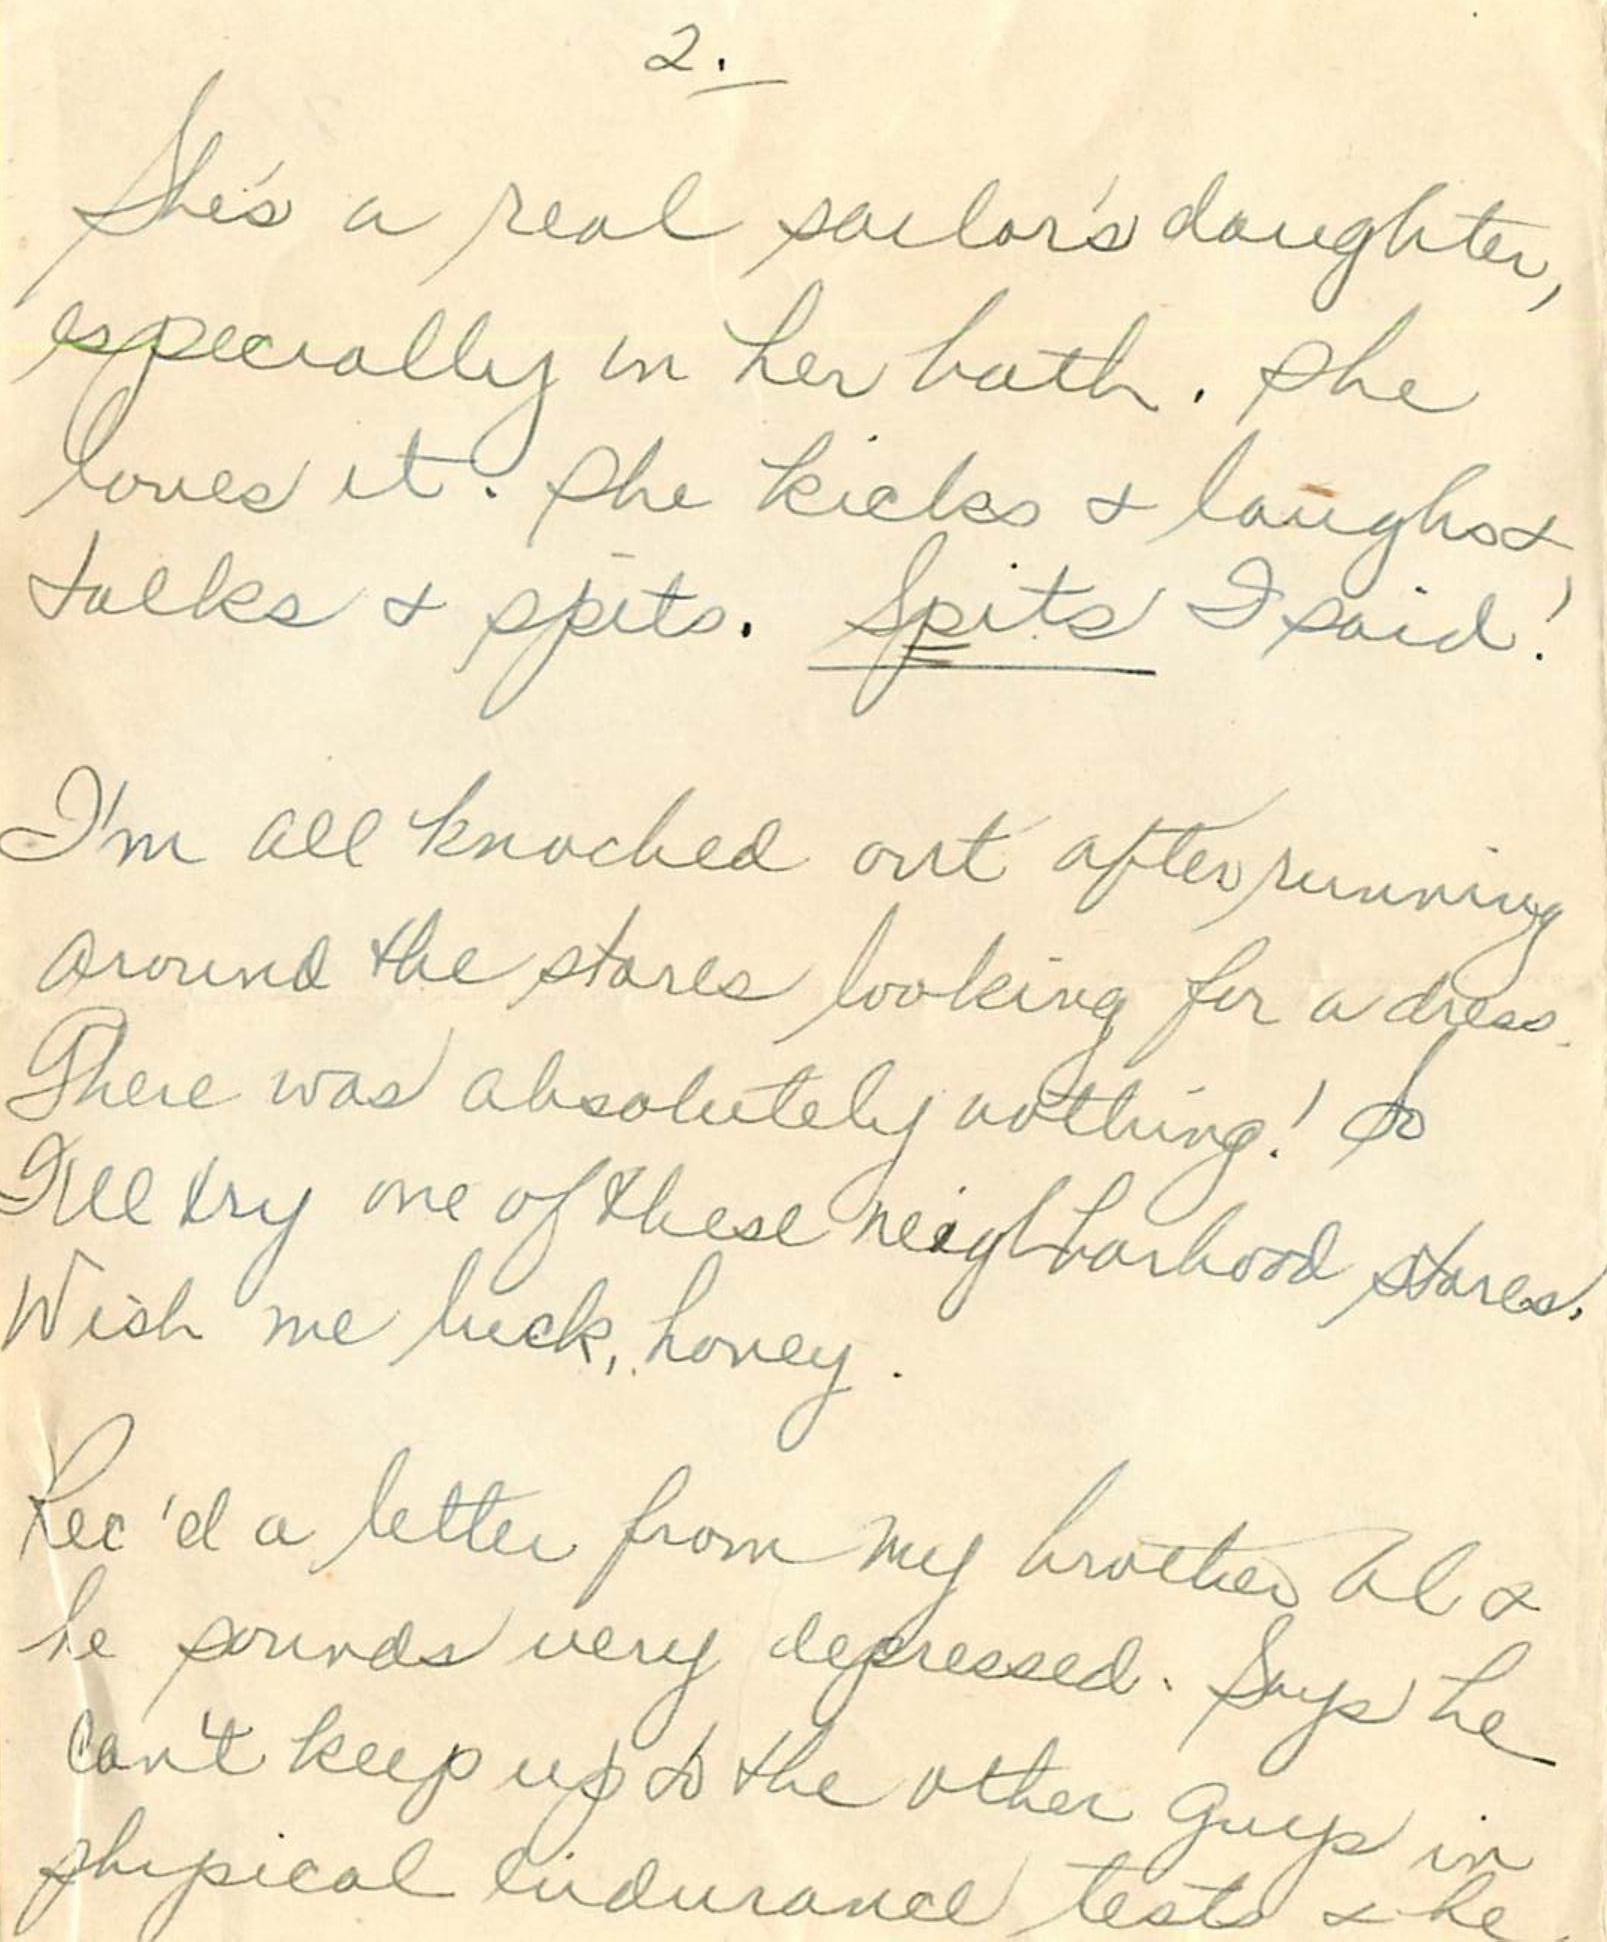 2.
She's a real sailor's daughter,
especially in her bath. She
loves it. She kicks & laughs &
talks & spits. Spits I said!
I'm all knocked out after running
around the stores looking for a dress.
There was absolutely nothing! So
I'll try one of these neighborhood stores.
Wish me luck, honey.
Rec'd a letter from my brother Al &
he sounds very depressed. Says he
can't keep up to the other guys in
physical endurance tests & he